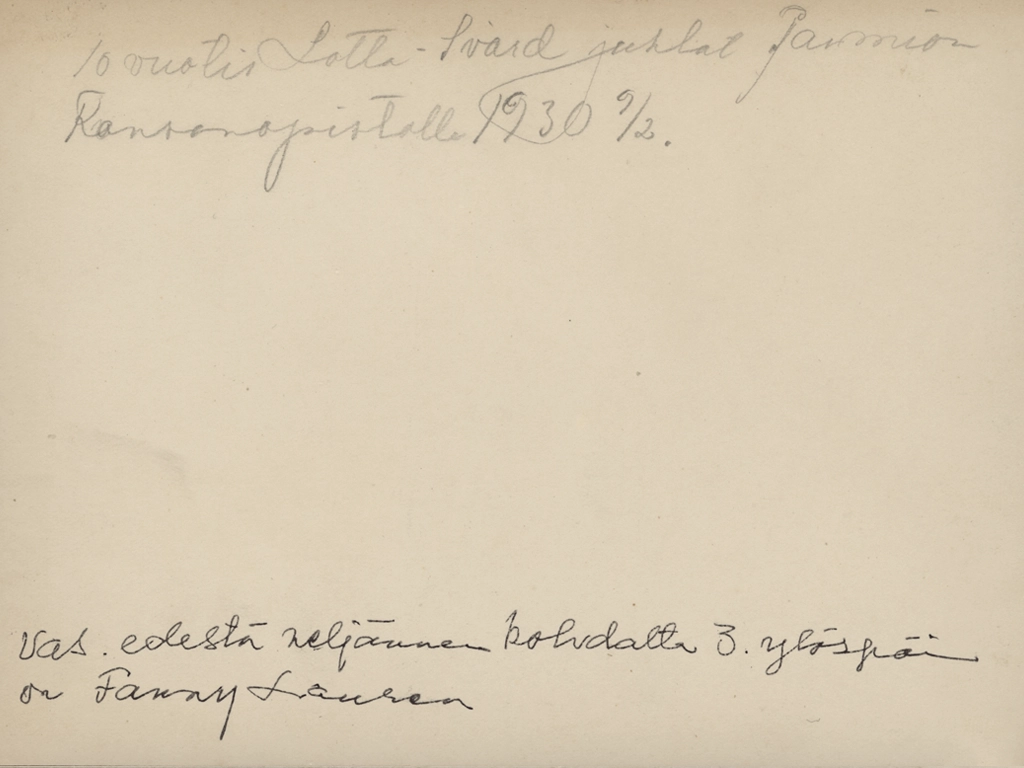 10 vuotis Lotta-Svärd juhlat Paimion
Kansanopistolla 1930 9/2.
Vas. edestä neljännen kohdalta 3. ylöspäin
on Fanny Lauren